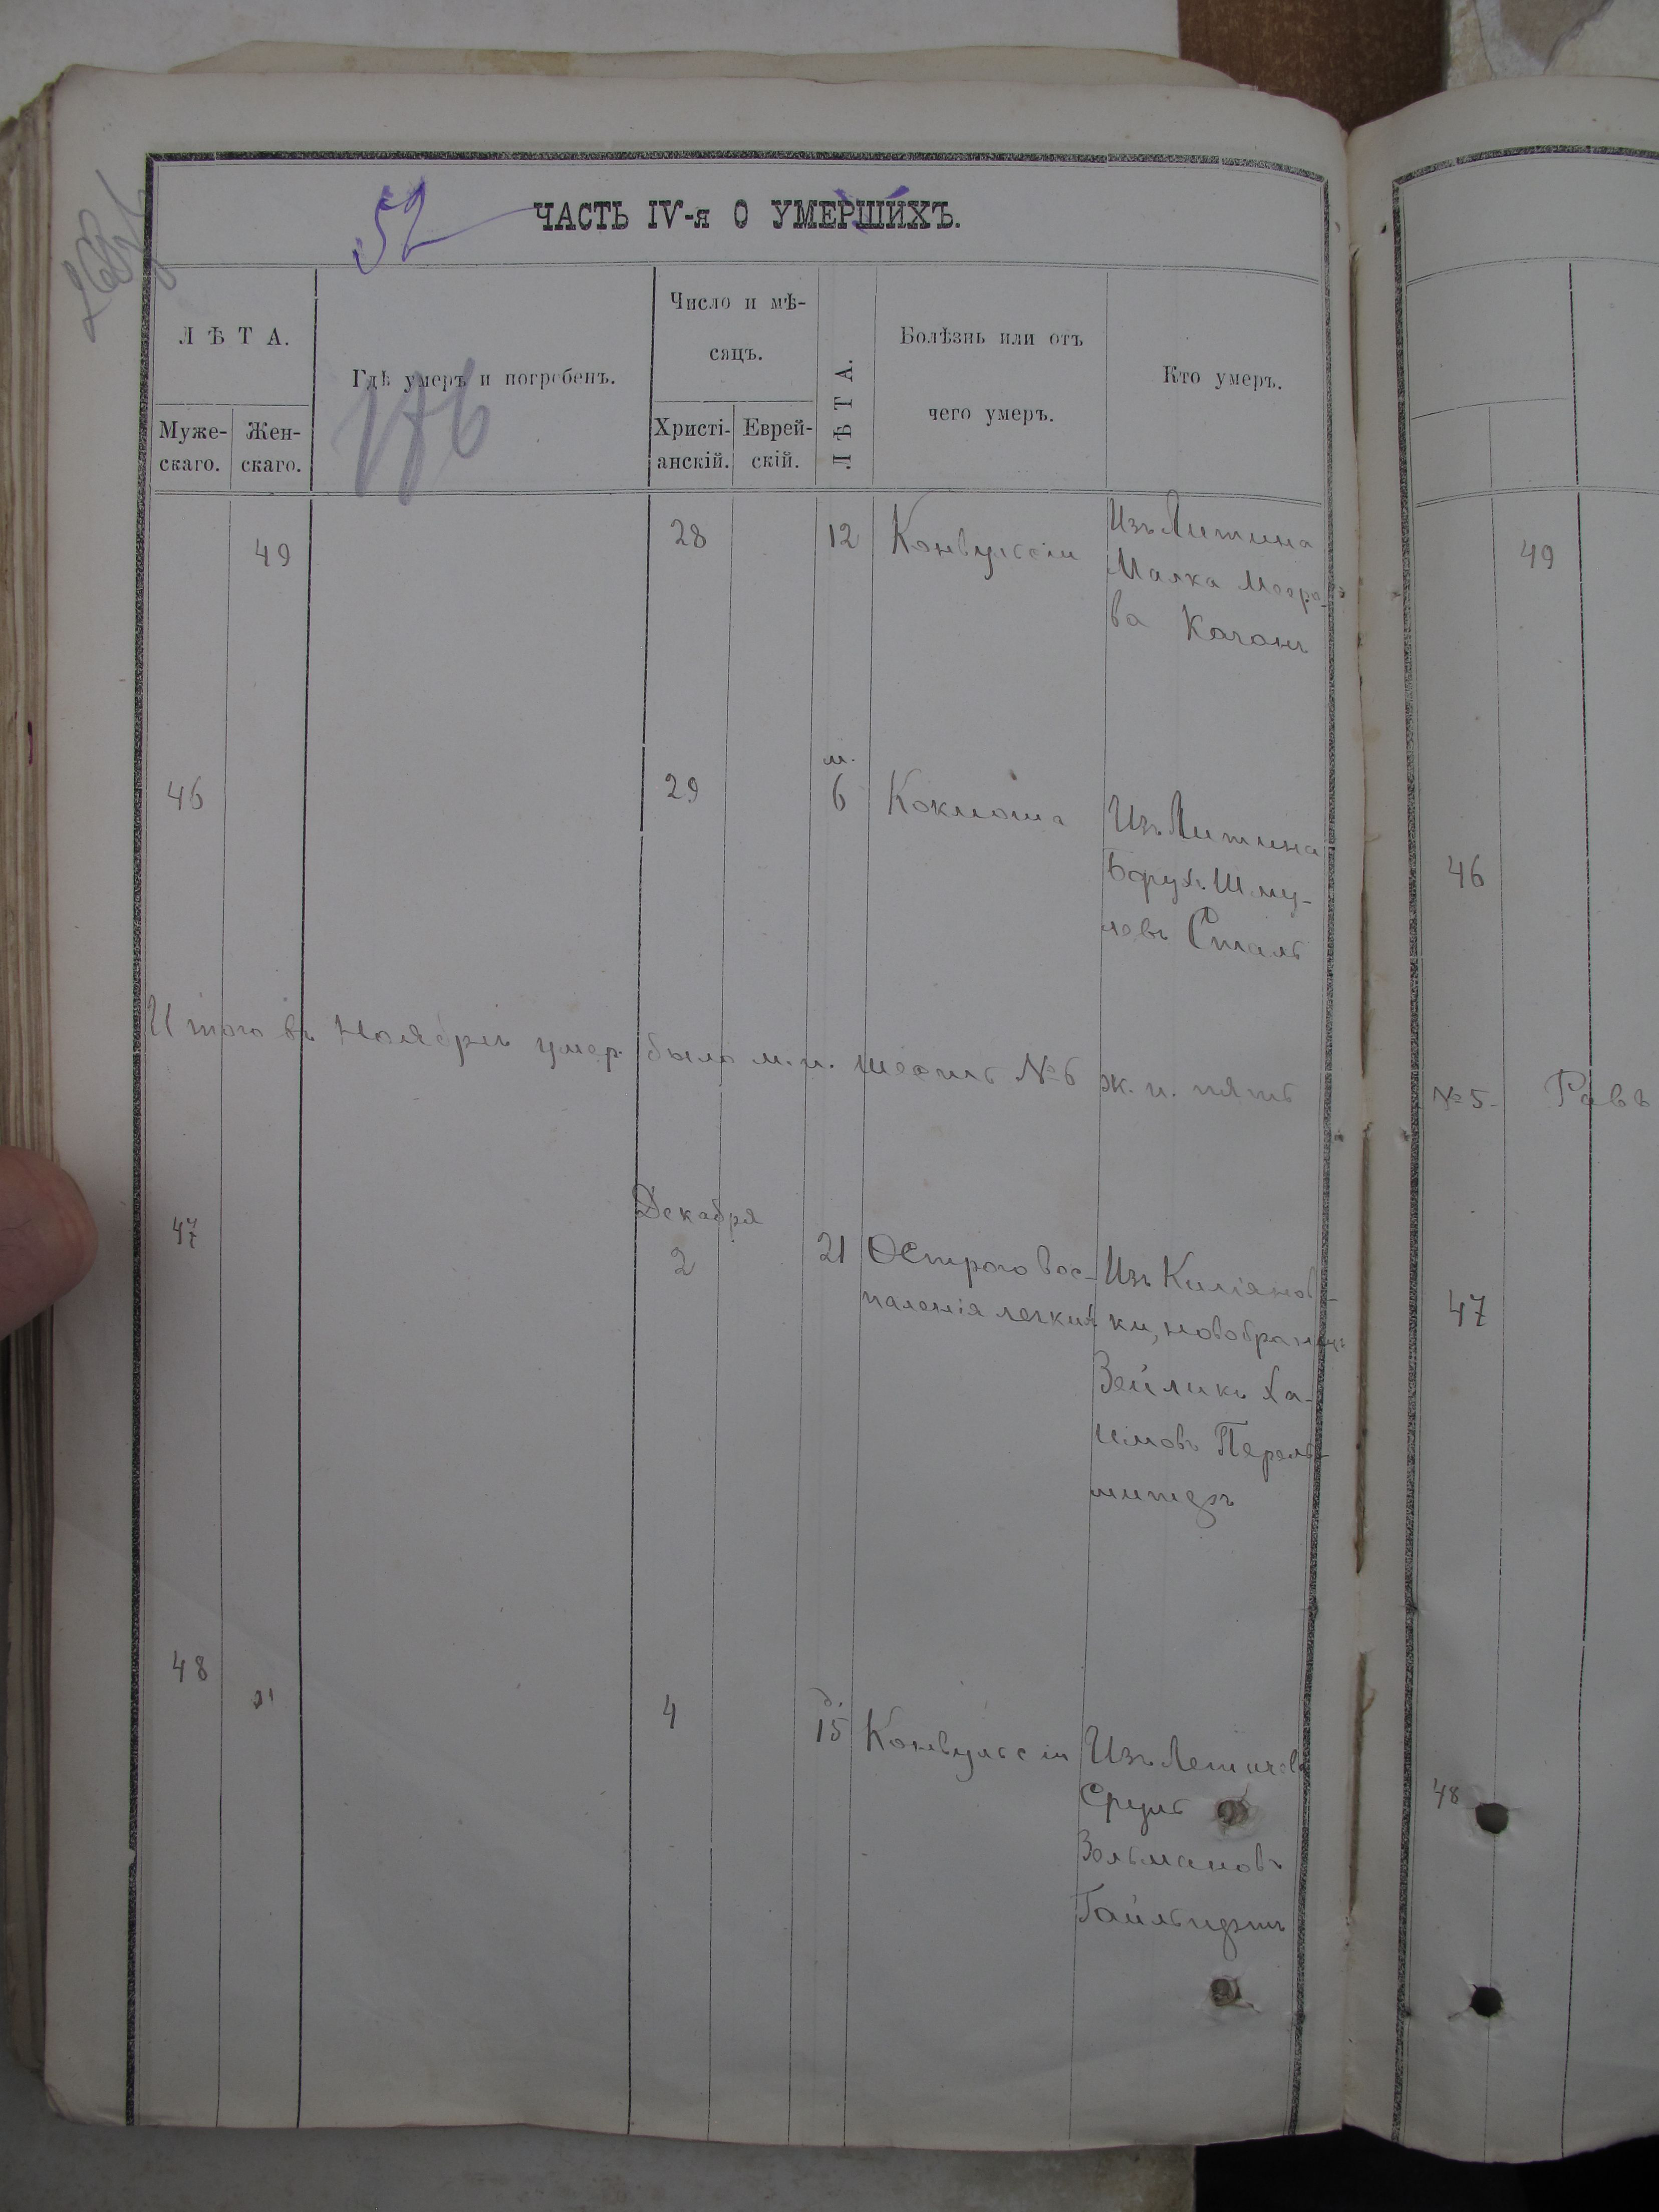 52
ЧАСТЬ IV-я О УМЕРШИХЪ.
ЛѢТА.
Муже-
скаго.
Жен-
скаго.
Гдѣ умеръ и погребенъ.
176
Число и мѣ-
сяцъ.
Христі-
анскій.
Еврей-
скій.
ЛѢТА.
Болѣзнь или отъ
чего умеръ.
Кто умеръ.
49
28
12
Конвульсіи
Изъ Литина
Малка Мееро-
ва Каганъ
49
46
29
м.
6
Коклюша
Изъ Литина
Борухъ Шму-
левъ Сталь
46
Итого въ Ноябрѣ умер. было м. п. шесть №6 ж. п. пять
№5-
Равв
47
Декабря
2
21
Остраго вос-
паленія легкихъ
Изъ Киліянов-
ки, новобранецъ
Зейликъ Ха-
имовъ Перель-
митеръ
47
48
4
д.
15
Конвульсіи
Изъ Летичева
Сруль
Зельмановъ
48